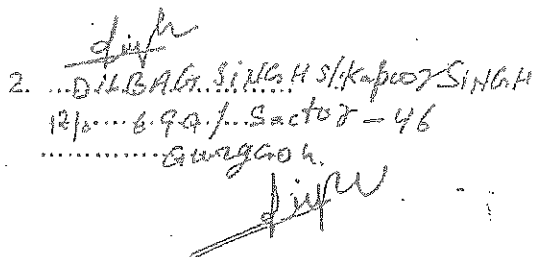 2. ...DILBAG SINGH S/. Kapoor SINGH
R/o.... 690/...Sector - 46
............Gurgaon.